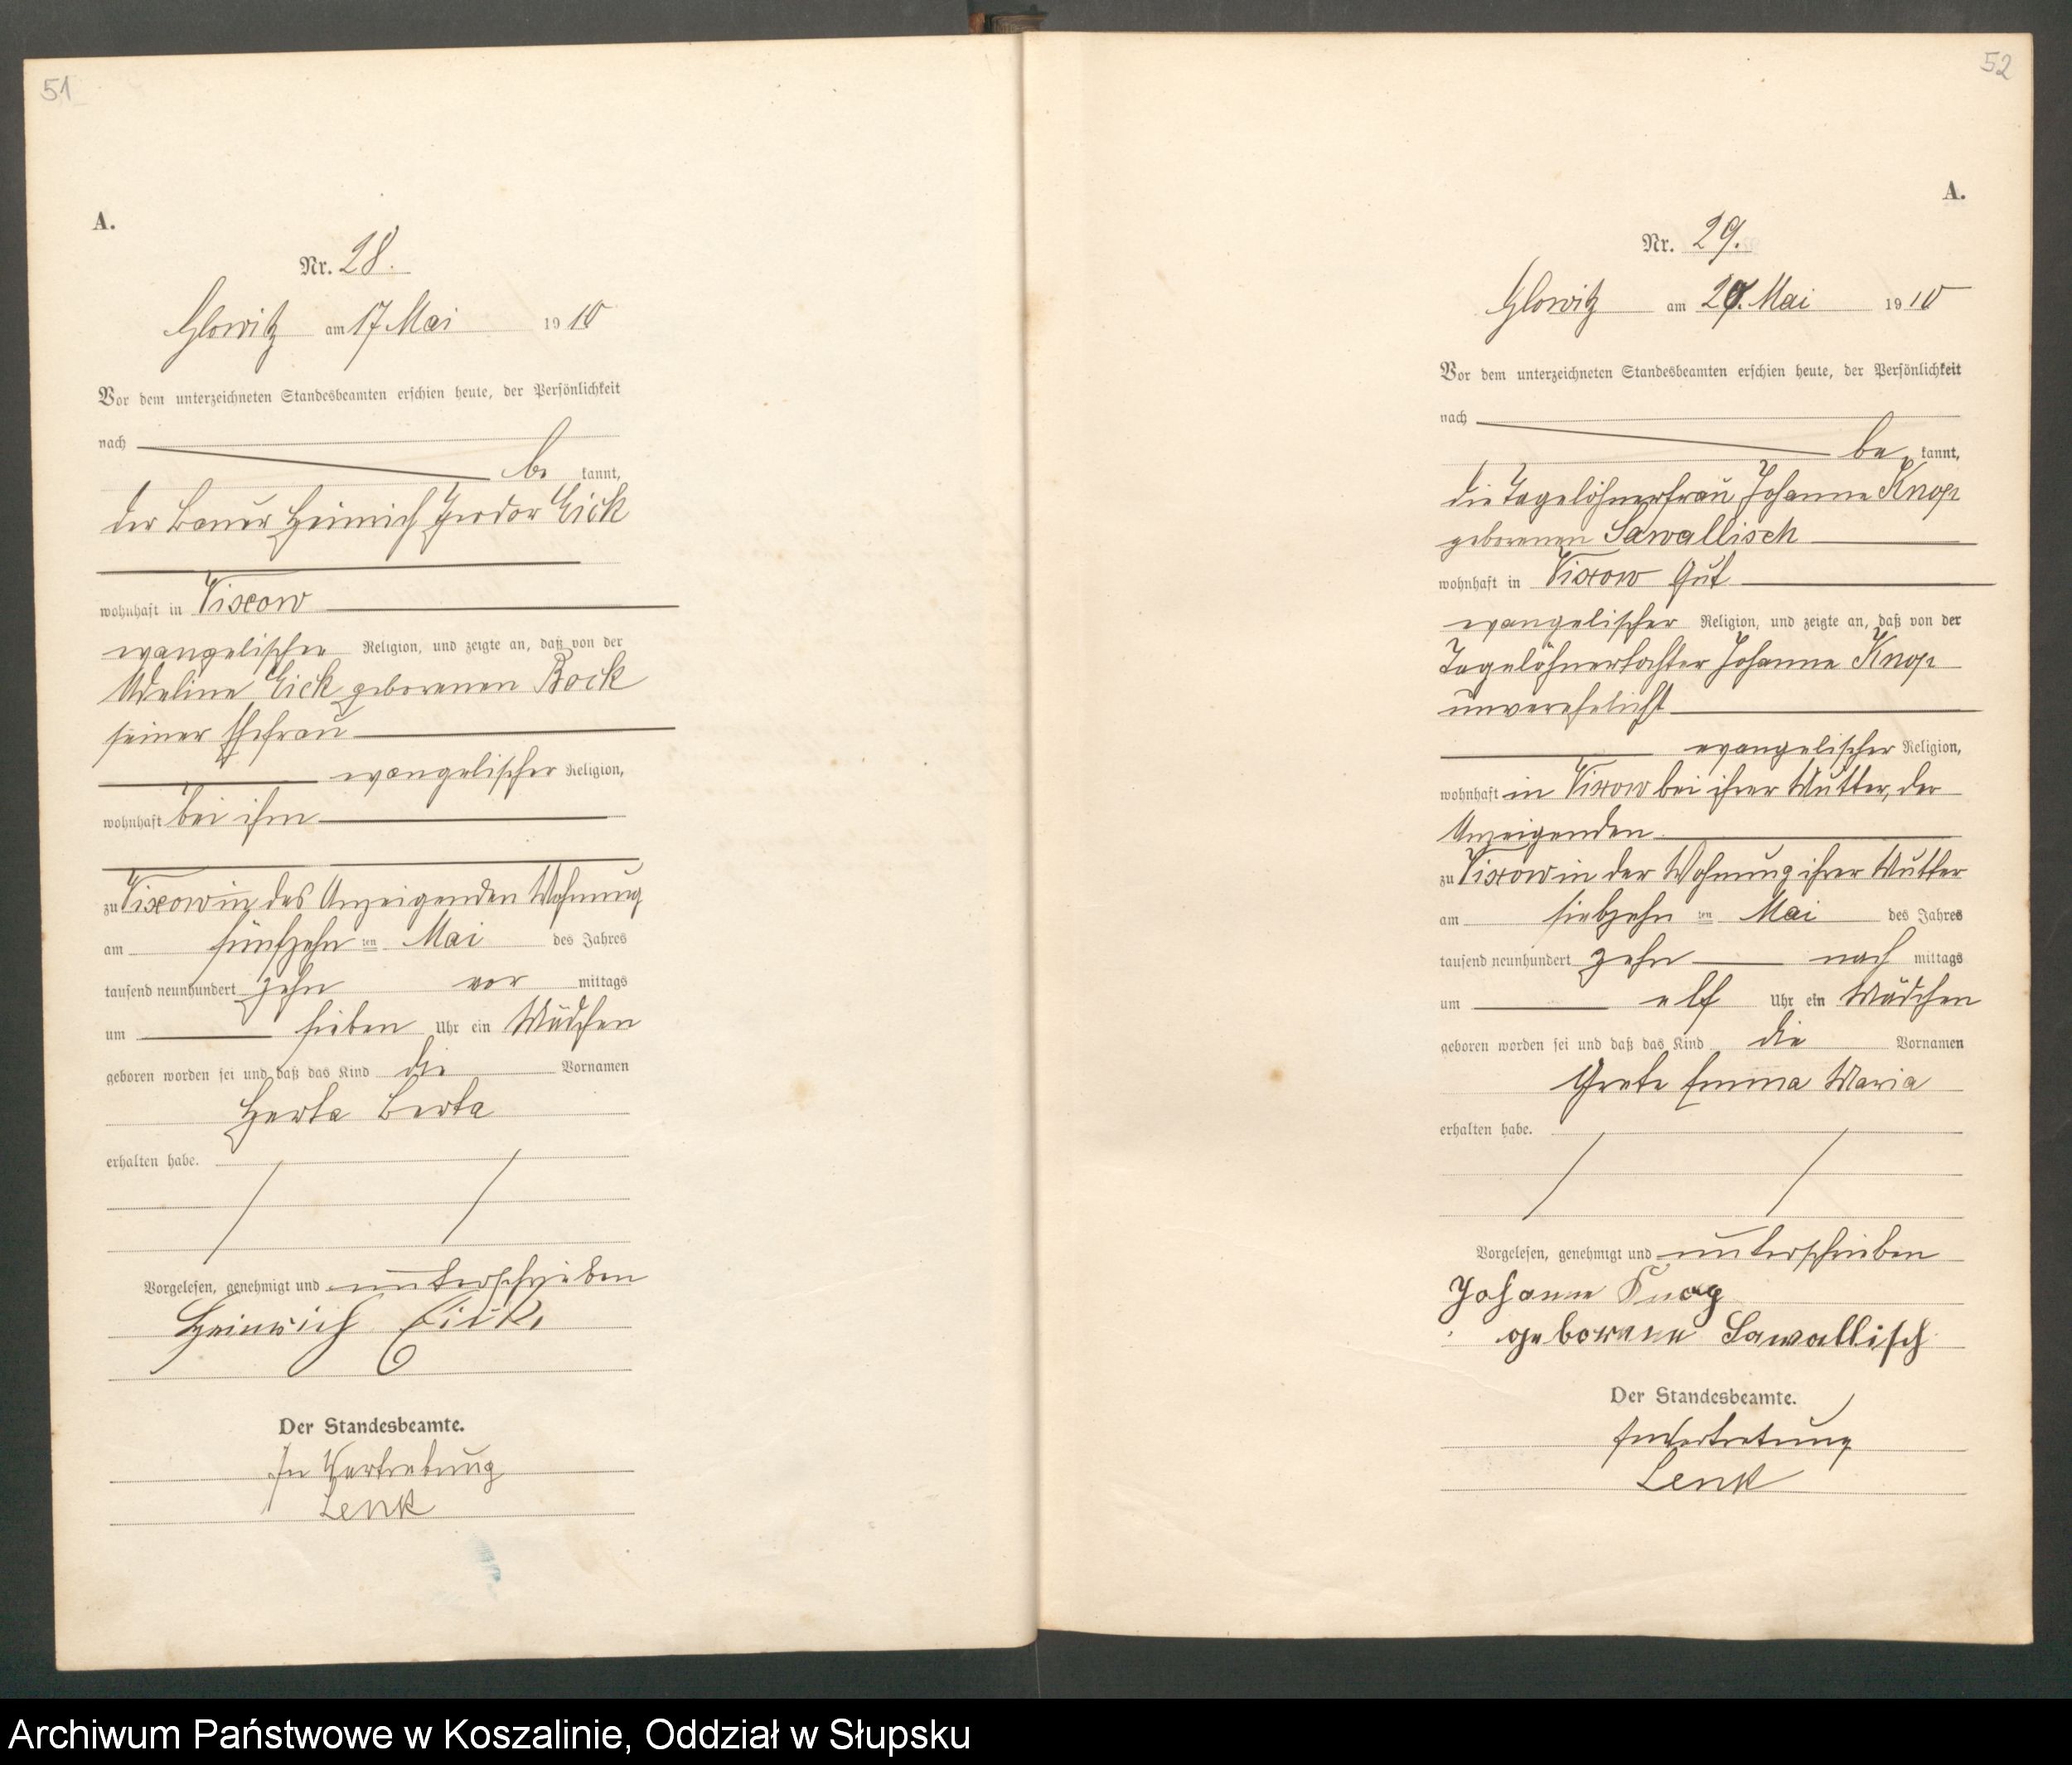 51
A.
Nr. 28.
Glowitz am 17 Mai 1910
Vor dem unterzeichneten Standesbeamten erschien heute, der Persönlichkeit
nach
be kannt,
der Bauer Heinrich Theodor Eick
wohnhaft in Vixow
evangelischer Religion, und zeigte an, daß von der
Adeline Eick geborenen Bock
seiner Ehefrau
evangelischer Religion,
wohnhaft bei ihm
zu Vixow in des Anzeigenden Wohnung
am fünfzehn ten Mai des Jahres
tausend neunhundert zehn vor mittags
um sieben Uhr ein Mädchen
geboren worden sei und daß das Kind die Vornamen
Herta Berta
erhalten habe.
Vorgelesen, genehmigt und unterschrieben
Heinrich Eick.
Der Standesbeamte.
In Vertretung
Lenk
52
A.
Nr. 29.
Glowitz am Mai 1910
Vor dem unterzeichneten Standesbeamten erschien heute, der Persönlichkeit
nach
be kannt,
die Tagelöhnerfrau Johanne Knop
geborenen Sawallisch
wohnhaft in Vixow Gut
evangelischer Religion, und zeigte an, daß von der
Tagelöhnertochter Johanne Knop
unverehelicht
evangelischer Religion,
wohnhaft in Vixow bei ihrer Mutter, der
Anzeigenden
zu Vixow in der Wohnung ihrer Mutter
am siebzehn ten Mai des Jahres
tausend neunhundert zehn nach mittags
um elf Uhr ein Mädchen
geboren worden sei und daß das Kind die Vornamen
Grete Emma Maria
erhalten habe.
Vorgelesen, genehmigt und unterschrieben
Johanne Knop
geborene Sawallisch
Der Standesbeamte.
In Vertretung
Lenk
Archiwum Państwowe w Koszalinie, Oddział w Słupsku